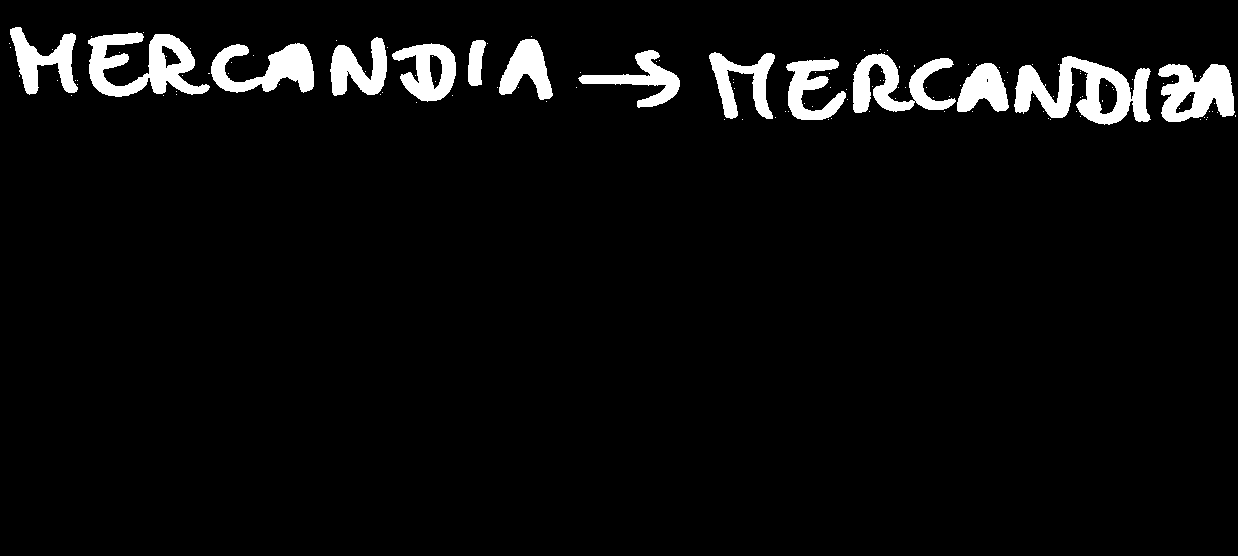 MERCANDIA → MERCANDIZA